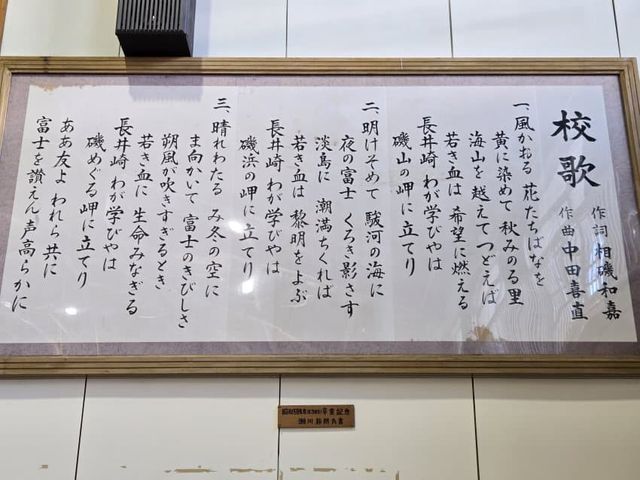 校歌
作詞 相磯和嘉
作曲 中田喜直
一、風かおる 花たちばなを
黄に染めて 秋みのる里
海山を越えて つどえば
若き血は 希望に燃える
長井崎 わが学びやは
磯山の岬に立てり
二、明けそめて 駿河の海に
夜の富士 くろき影さす
淡島に 潮満ちくれば
若き血は 黎明をよぶ
長井崎 わが学びやは
磯浜の岬に立てり
三、晴れわたる み冬の空に
ま向かいて 富士のきびしさ
朔風が吹きすぎるとき
若き血に 生命みなぎる
長井崎 わが学びやは
磯めぐる岬に立てり
ああ友よ われら共に
富士を讃えん 声高らかに
卒業記念